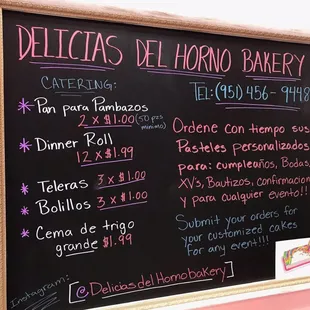 DELICIAS DEL HORNO BAKERY
CATERING:
TEL: (951) 456-9448
* Pan para Pambazos
2 x $1.00 (50 pzs minimo)
* Dinner Roll
12 x $1.99
* Teleras 3 x $1.00
* Bolillos 3 x $1.00
* Cema de trigo
grande $1.99
Ordene con tiempo sus
Pasteles personalizados
para: cumpleaños, Bodas,
XVs, Bautizos, confirmacion
y para cualquier evento!!
Submit your orders for
your customized cakes
for any event!!!
Instagram:
[@DeliciasdelHornobakery]